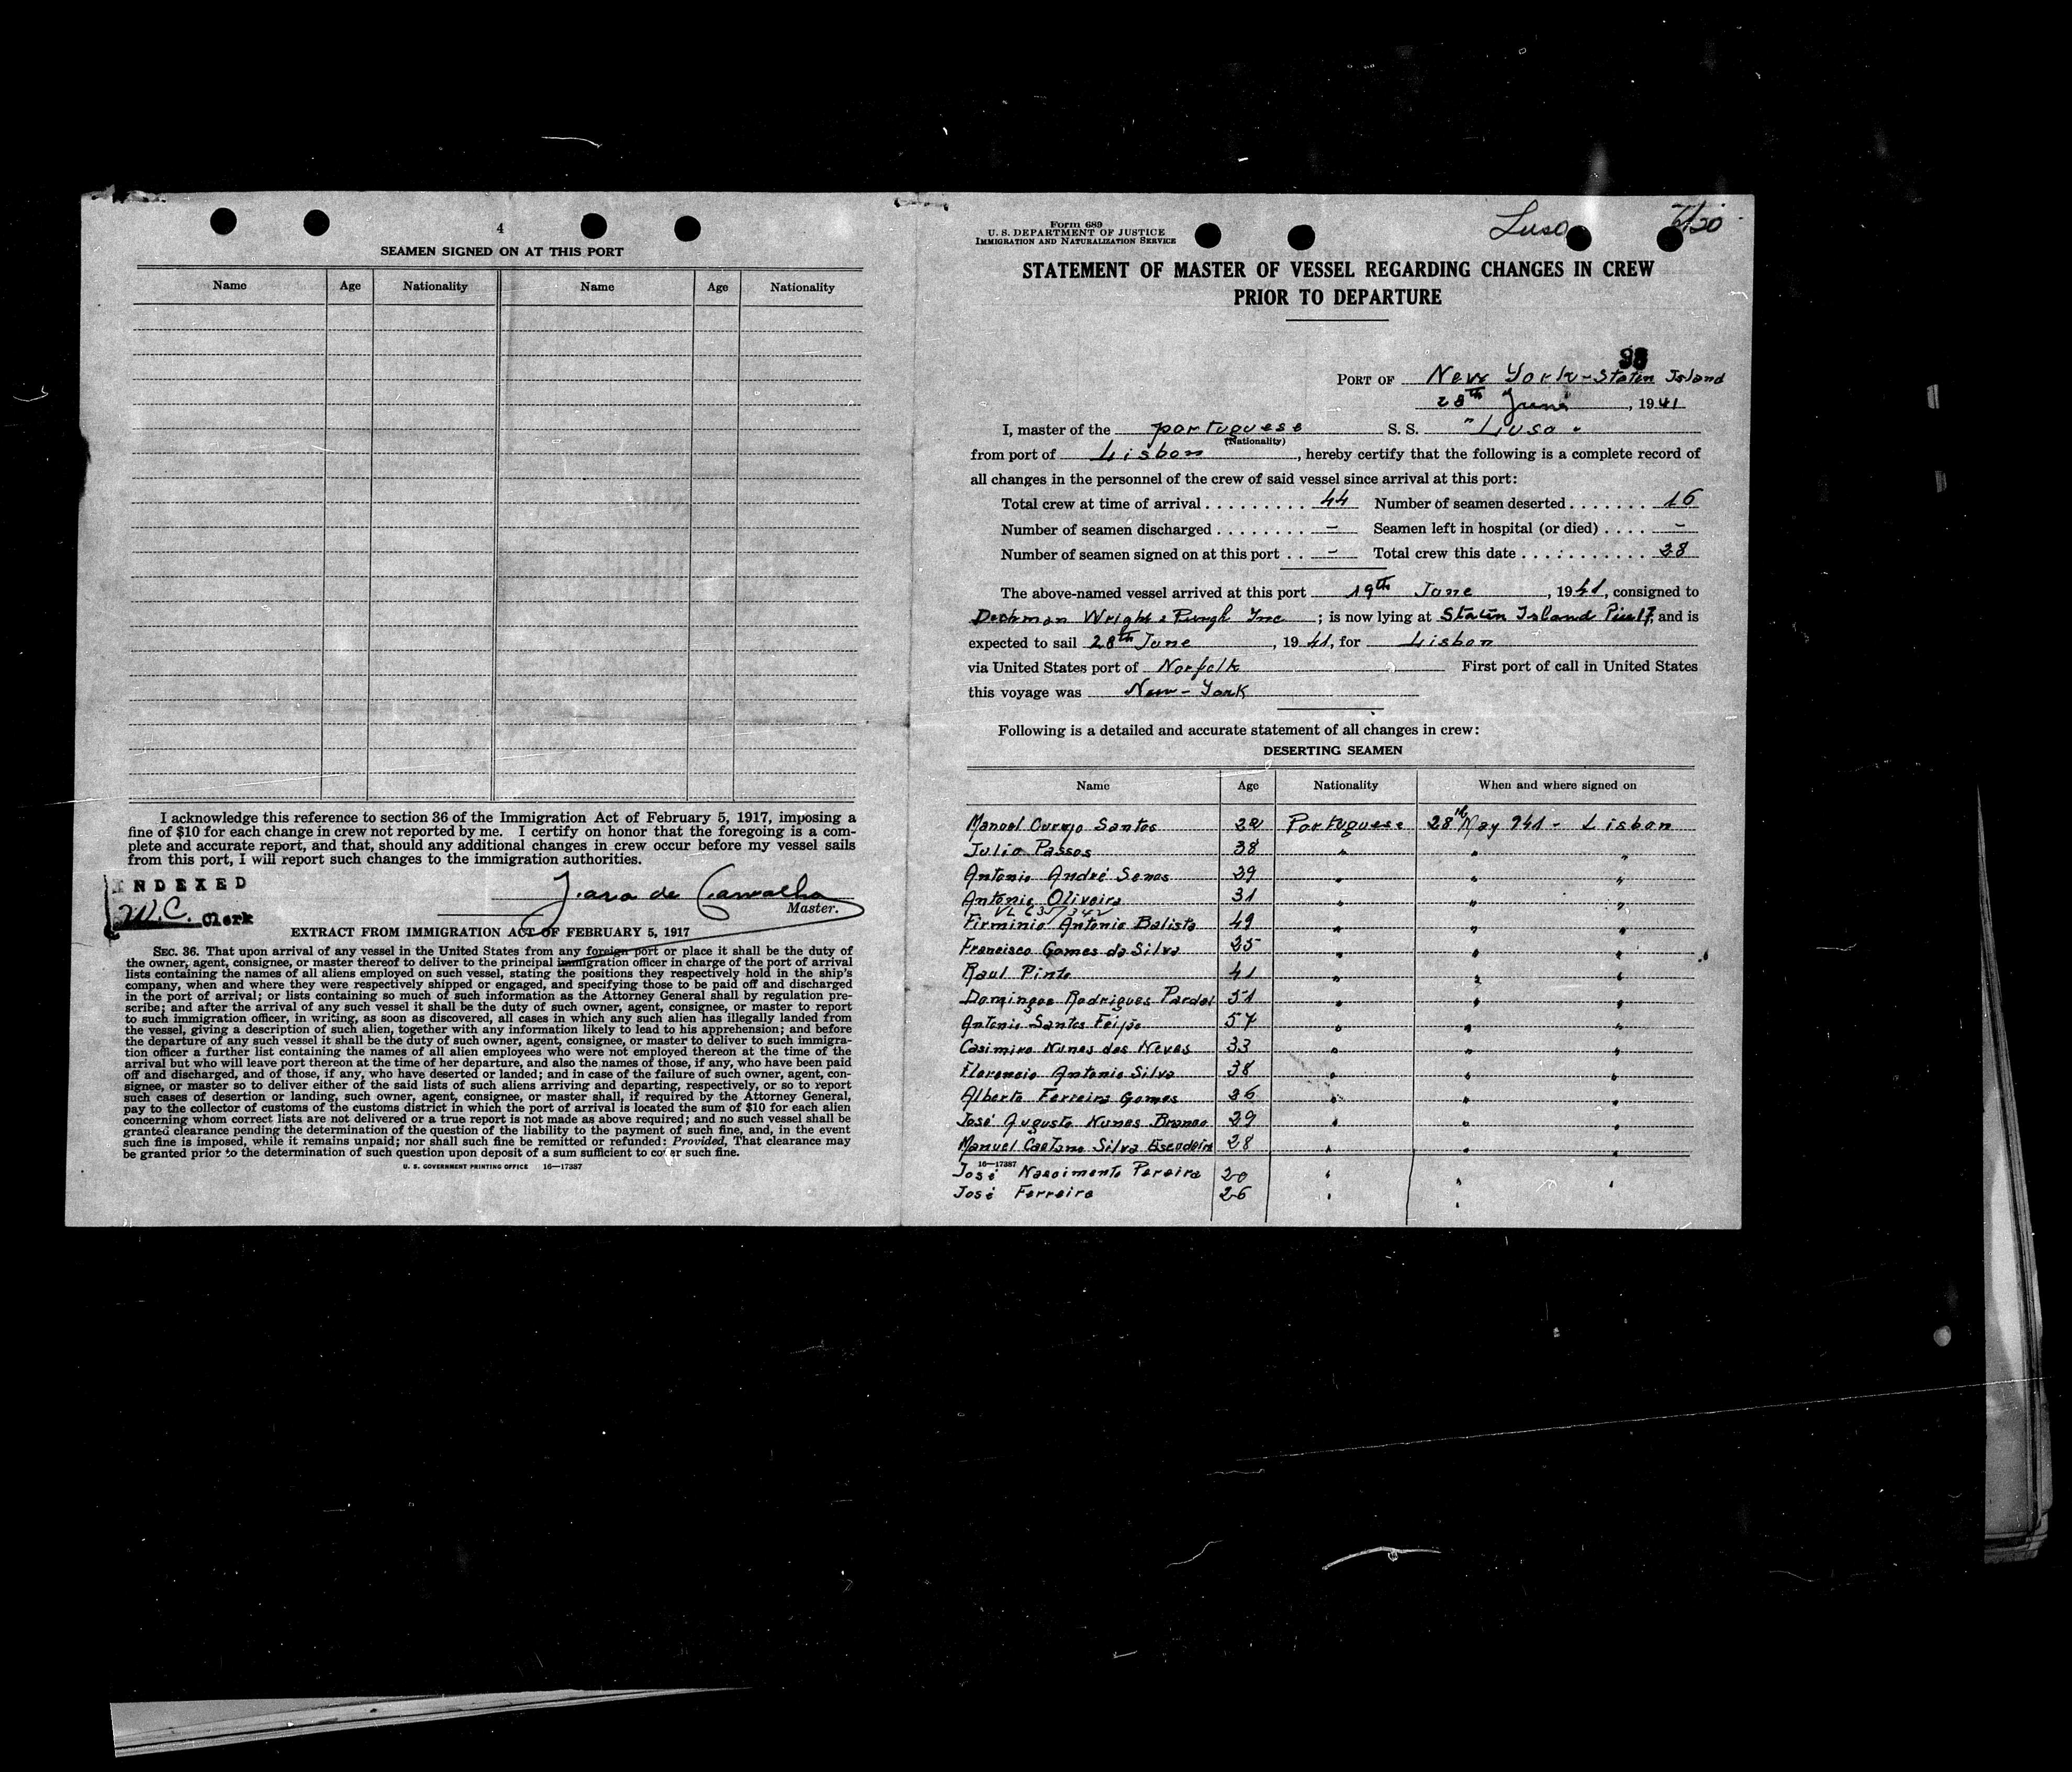 4
SEAMEN SIGNED ON AT THIS PORT
Name Age Nationality Name Age Nationality
I acknowledge this reference to section 36 of the Immigration Act of February 5, 1917, imposing a
fine of $10 for each change in crew not reported by me. I certify on honor that the foregoing is a com-
plete and accurate report, and that, should any additional changes in crew occur before my vessel sails
from this port, I will report such changes to the immigration authorities.
INDEXED
W.C. Clerk
de Carvalho
Master.
EXTRACT FROM IMMIGRATION ACT OF FEBRUARY 5, 1917
SEC. 36. That upon arrival of any vessel in the United States from any foreign port or place it shall be the duty of
the owner, agent, consignee, or master thereof to deliver to the principal immigration officer in charge of the port of arrival
lists containing the names of all aliens employed on such vessel, stating the positions they respectively hold in the ship's
company, when and where they were respectively shipped or engaged, and specifying those to be paid off and discharged
in the port of arrival; or lists containing so much of such information as the Attorney General shall by regulation pre-
scribe; and after the arrival of any such vessel it shall be the duty of such owner, agent, consignee, or master to report
to such immigration officer, in writing, as soon as discovered, all cases in which any such alien has illegally landed from
the vessel, giving a description of such alien, together with any information likely to lead to his apprehension; and before
the departure of any such vessel it shall be the duty of such owner, agent, consignee, or master to deliver to such immigra-
tion officer a further list containing the names of all alien employees who were not employed thereon at the time of the
arrival but who will leave port thereon at the time of her departure, and also the names of those, if any, who have been paid
off and discharged, and of those, if any, who have deserted or landed; and in case of the failure of such owner, agent, con-
signee, or master so to deliver either of the said lists of such aliens arriving and departing, respectively, or so to report
such cases of desertion or landing, such owner, agent, consignee, or master shall, if required by the Attorney General,
pay to the collector of customs of the customs district in which the port of arrival is located the sum of $10 for each alien
concerning whom correct lists are not delivered or a true report is not made as above required; and no such vessel shall be
granted clearance pending the determination of the question of the liability to the payment of such fine, and, in the event
such fine is imposed, while it remains unpaid; nor shall such fine be remitted or refunded: Provided, That clearance may
be granted prior to the determination of such question upon deposit of a sum sufficient to cover such fine.
U. S. GOVERNMENT PRINTING OFFICE 16—17387
Form 689
U. S. DEPARTMENT OF JUSTICE
IMMIGRATION AND NATURALIZATION SERVICE
Luso
STATEMENT OF MASTER OF VESSEL REGARDING CHANGES IN CREW
PRIOR TO DEPARTURE
PORT OF New York - Staten Island
28th June, 1941
I, master of the portuguese S. S. "Luso"
(Nationality)
from port of Lisbon, hereby certify that the following is a complete record of
all changes in the personnel of the crew of said vessel since arrival at this port:
Total crew at time of arrival 44 Number of seamen deserted 16
Number of seamen discharged - Seamen left in hospital (or died) -
Number of seamen signed on at this port - Total crew this date 28
The above-named vessel arrived at this port 19th June, 1941, consigned to
Inc ; is now lying at Staten Island 17, and is
expected to sail 28th June, 1941, for Lisbon
via United States port of Norfolk First port of call in United States
this voyage was New-York
Following is a detailed and accurate statement of all changes in crew:
DESERTING SEAMEN
Name Age Nationality When and where signed on
Manoel Santos 22 Portuguese 28th May 941 - Lisbon
Julio Passos 38 " " "
Antonio André Senos 39 " " "
Antonio Oliveira 31 " " "
Firminio Antonio Batista 49 " " "
Francisco Gomes da Silva 25 " " "
Raul Pinto 41 " " "
Domingos Rodrigues Pardal 51 " " "
Antonio Santos Feijão 57 " " "
Casimiro Nunes das Neves 33 " " "
Florencio Antonio Silva 38 " " "
Alberto Ferreira Gomes 36 " " "
José Augusto Nunes Branco 29 " " "
Manuel Caetano Silva Escudeiro 28 " " "
16—17387
José Nascimento Pereira 20 " " "
José Ferreira 26 " "